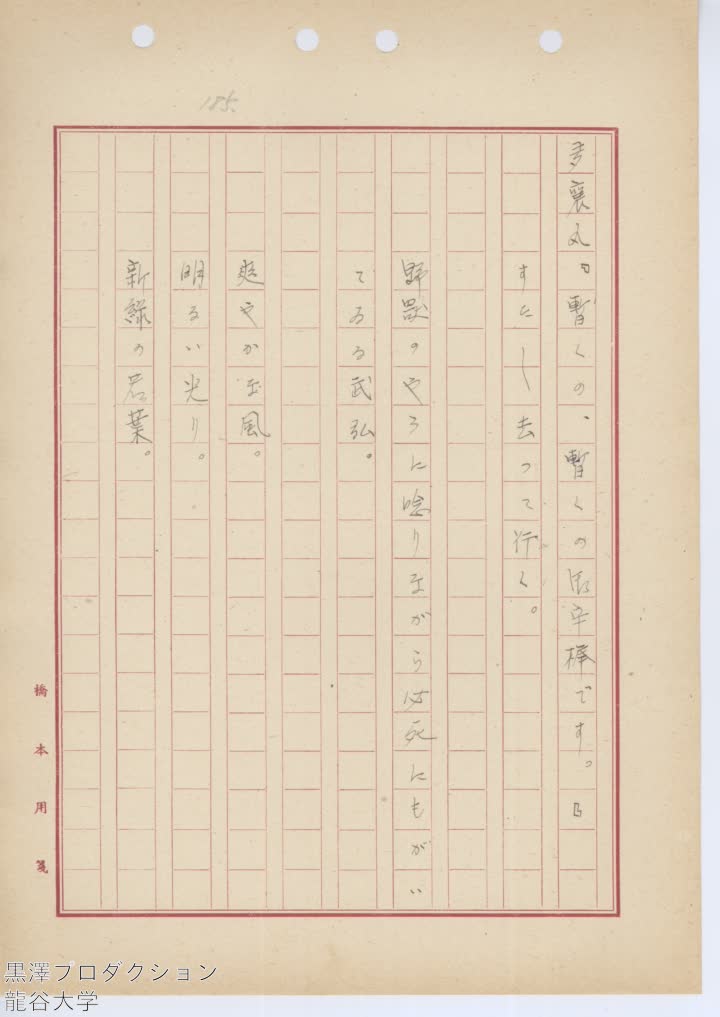 185.
多襄丸『暫くの、暫くの御辛棒です。』
すたし去って行く。
野獣のやうに唸りながら必死にもがい
てゐる武弘。
爽やかな風。
明るい光り。
新緑の若葉。
橋本用箋
黒澤プロダクション
龍谷大学